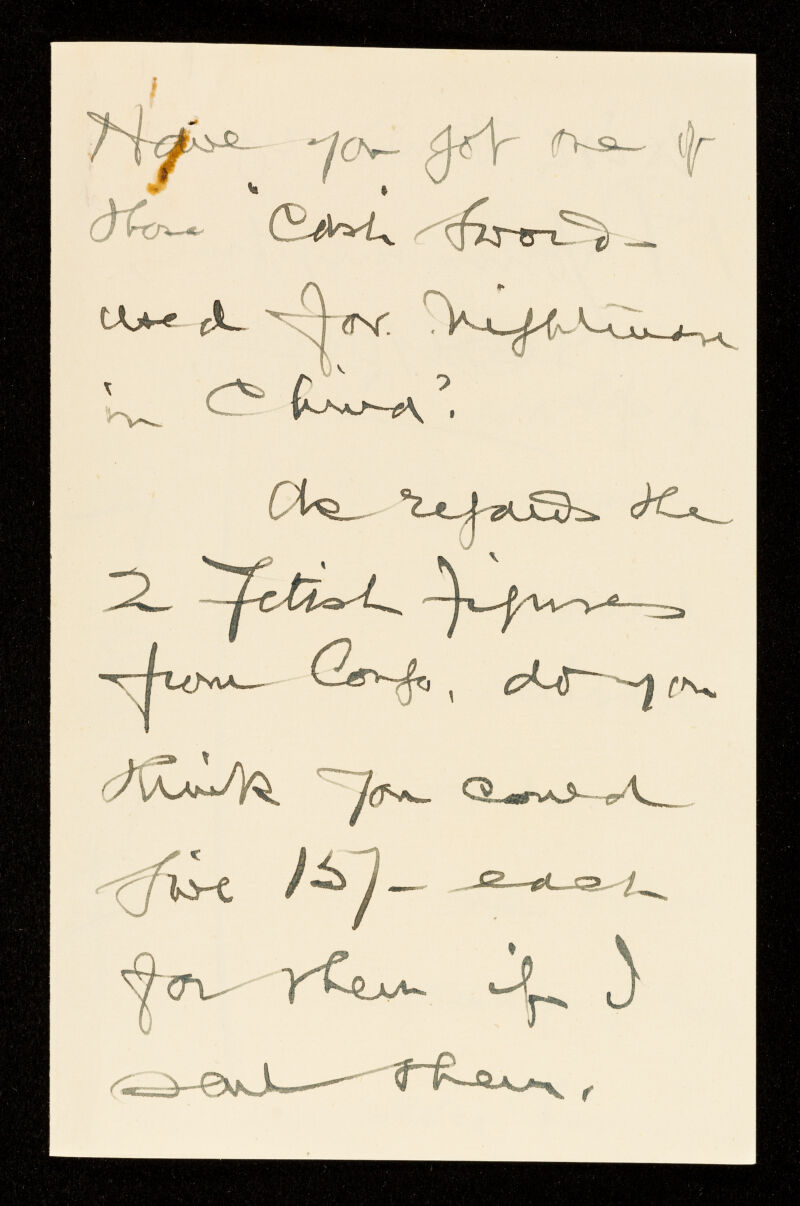 Have you got one of
those "Cash" Swords
used for Nightmare
in China?
As regards the
2 Fetish Figures
from Congo, do you
think you could
give 15/- each
for them if I
sent them.